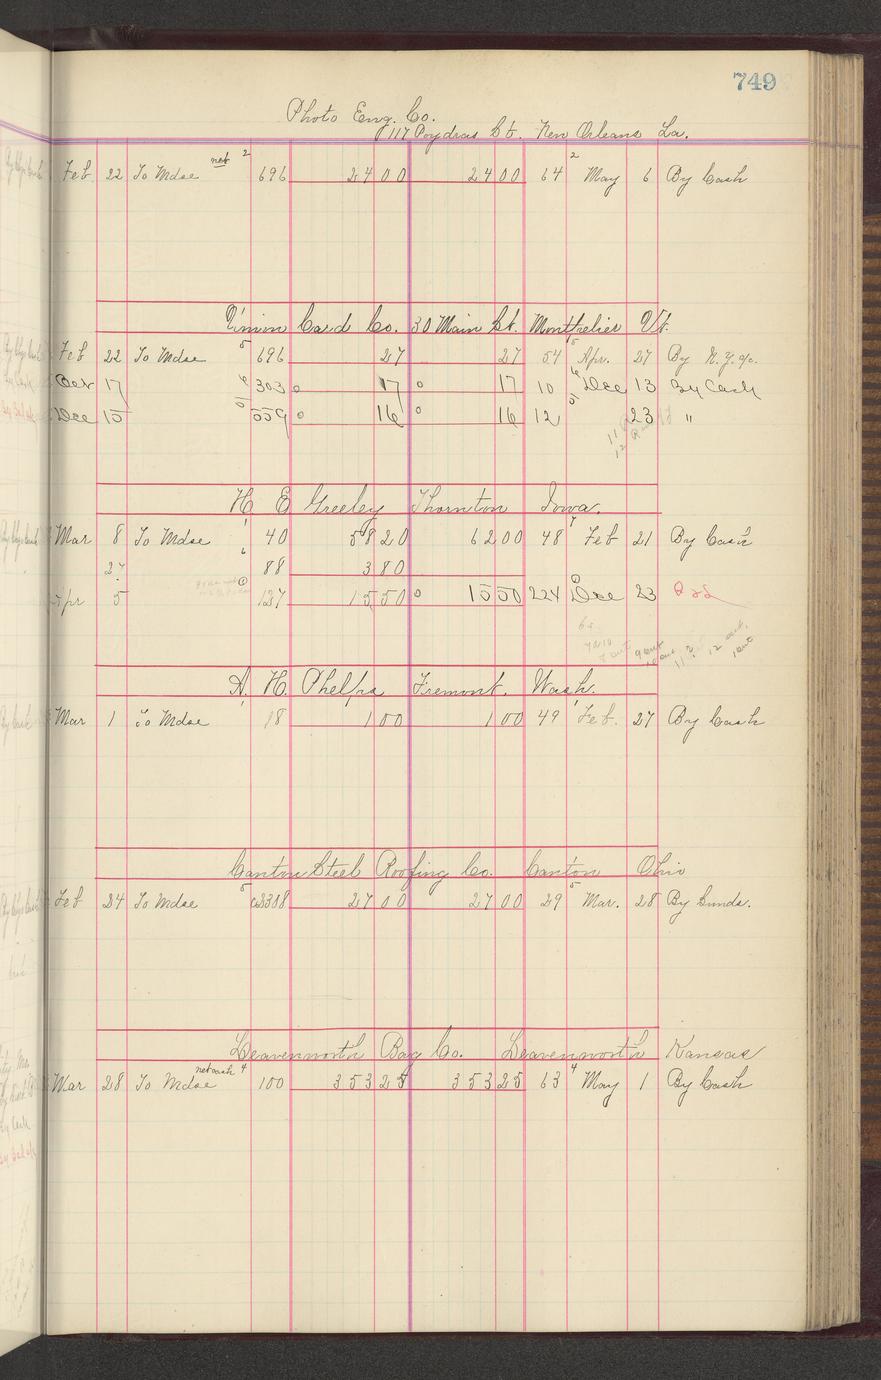 749
Photo Eng. Co.
117 Poydras St. New Orleans La.
Feb 22 To Mdse net 2 696 24 00 24 00 64 2 May 6 By Cash
Union Card Co. 30 Main St. Montpelier Vt.
Feb 22 To Mdse 5 696 27 27 54 5 Apr. 27 By N.Y. %.
Oct 17 6 303 0 17 0 17 10 6 Dec 13 By Cash
Dec 15 5 559 0 16 0 16 12 5 23 "
H. E. Greeley Thornton Iowa.
Mar 8 To Mdse 1 40 58 20 62 00 48 7 Feb 21 By Cash
27 6 88 3 80
Apr 5 137 15 50 0 15 50 224 Dec 23
A. H. Phelps Fremont. Wash.
Mar 1 To Mdse 18 1 00 1 00 49 1 Feb. 27 By Cash
Canton Steel Roofing Co. Canton Ohio
Feb 24 To Mdse 5 27 00 27 00 29 5 Mar. 28 By Sunds.
Leavenworth Bag Co. Leavenworth Kansas
Mar 28 To Mdse net cash 4 100 353 25 353 25 63 4 May 1 By Cash